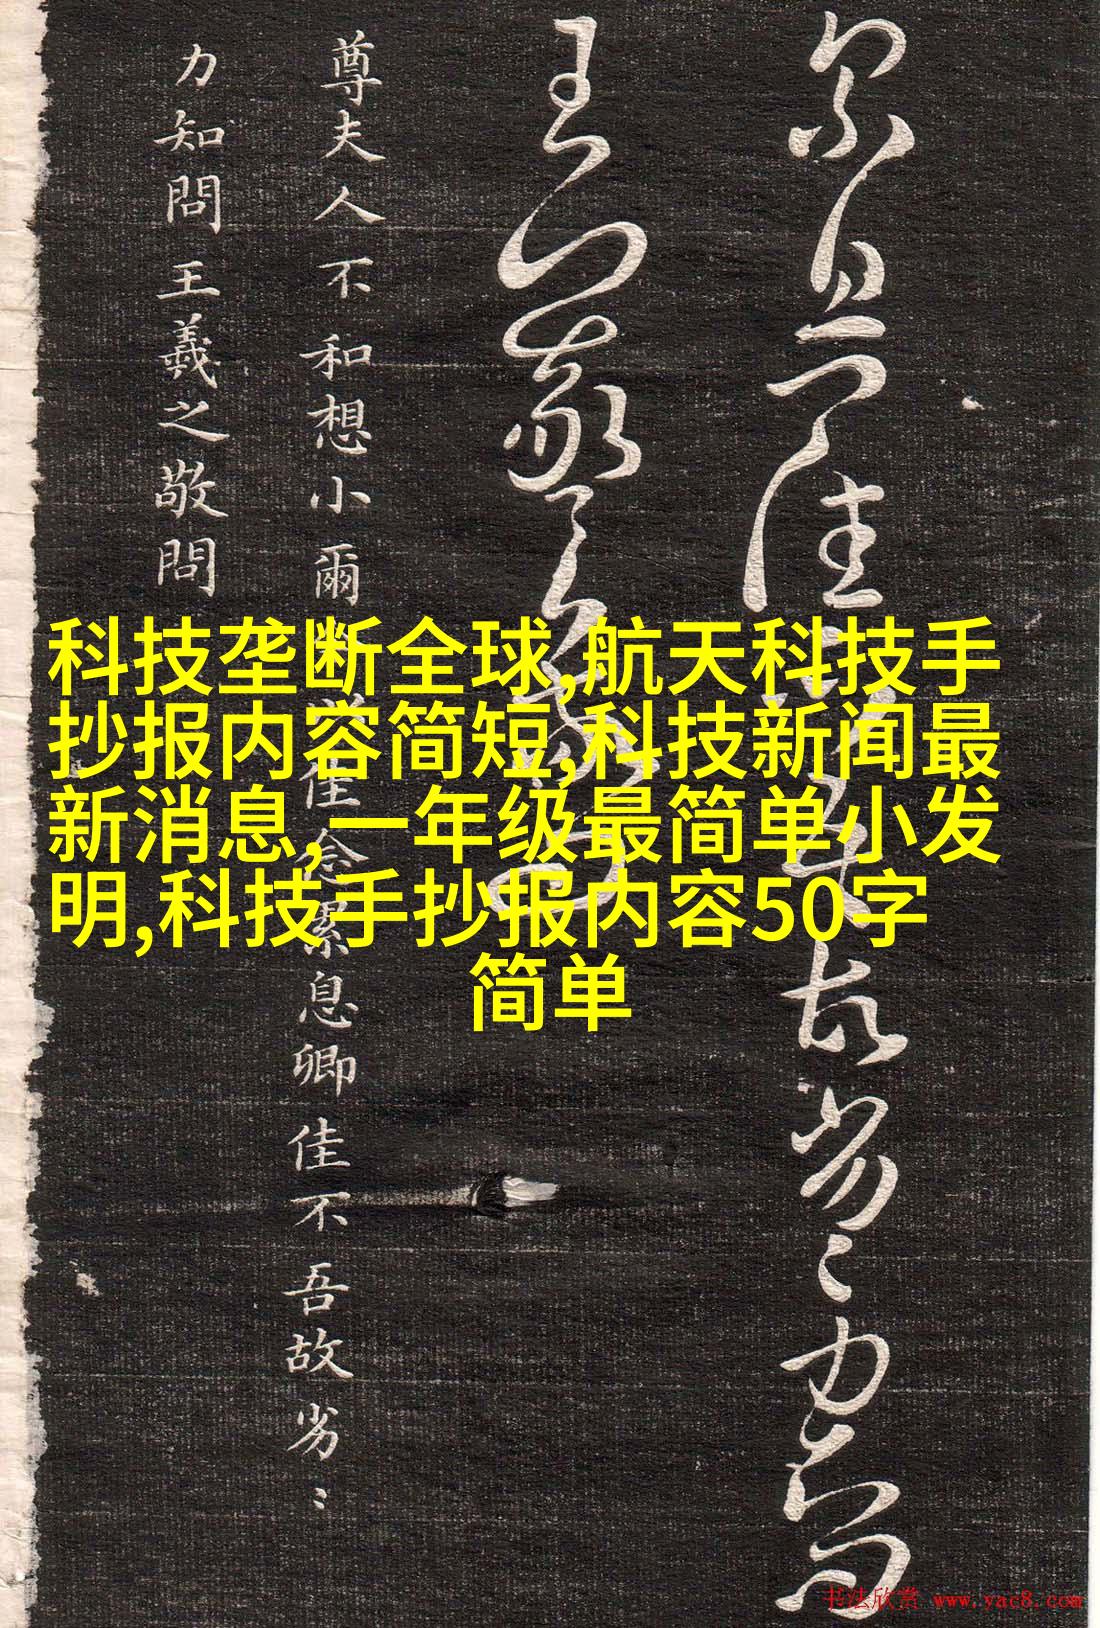 科技垄断全球,航天科技手
抄报内容简短,科技新闻最
新消息，一年级最简单小发
明,科技手抄报内容50字
简单
累息卿佳不吾故劣〻力知問
王羲之敬問
尊夫人不和想小爾佳念累息卿佳不吾故劣〻
力知問王羲之敬問
书法欣赏 www.yac8.com